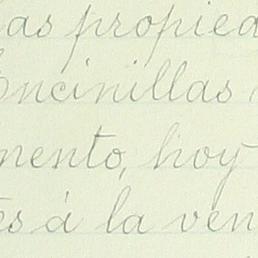 as propied
Encinillas
mento, hoy
es á la ven